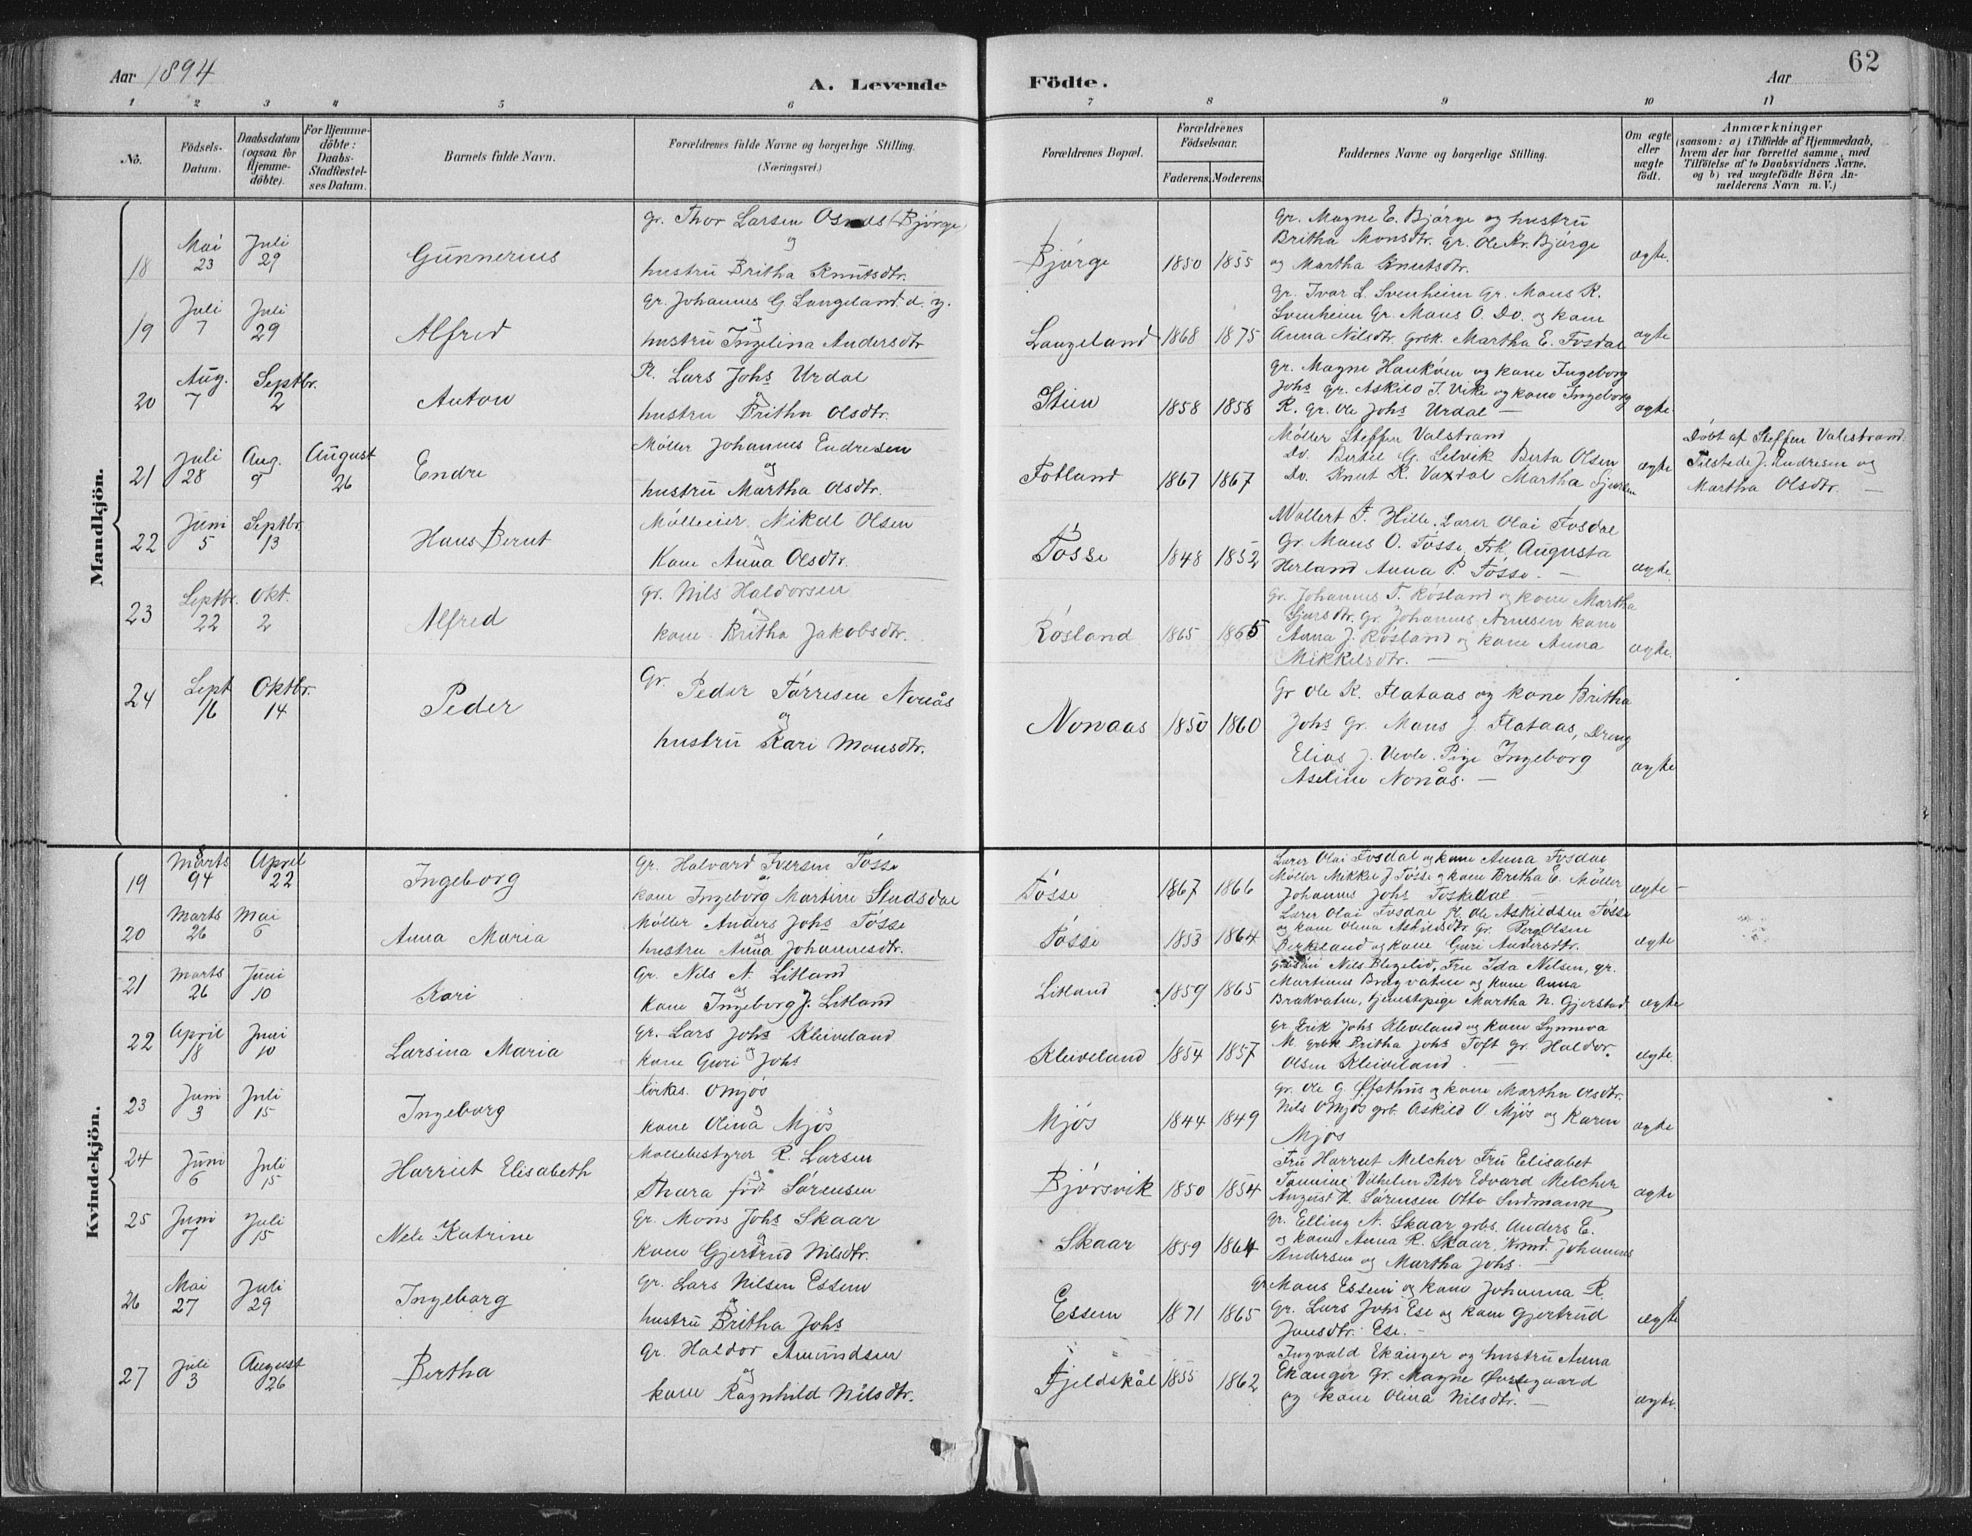 Aar 1894
A. Levende
Födte.
Aar
62
1 2 3 4 5 6 7 8 9 10 11
No.
Födsels-
Datum.
Daabsdatum
(ogsaa for
Hjemme-
döbte).
For Hjemme-
döbte:
Daabs-
Stadfæstel-
ses Datum.
Barnets fulde Navn.
Forældrenes fulde Navne og borgerlige Stilling.
(Næringsvei.)
Forældrenes Bopæl.
Forældrenes
Födselsaar.
Faderens. Moderens.
Faddernes Navne og borgerlige Stilling.
Om ægte
eller
uægte
födt.
Anmærkninger
(saasom: a) i Tilfælde af Hjemmedaab,
hvem der har forrettet samme, med
Tilföielse af to Daabsvidners Navne,
og b) ved uægtefödte Börn An-
melderens Navn m. V.)
Mandkjön.
18 Mai 23 Juli 29 Gunnerius
Gr. Thor Larsen (Bjørge)
og
hustru Britha Knutsdtr.
Bjørge 1850 1855
Gr. Magne E. Bjørge og hustru
Britha Monsdtr. Gr. Ole Kr. Bjørge
og Martha Knutsdtr.
ægte.
19 Juli 7 Juli 29 Alfred
Gr. Johannes G. Langeland d. y.
og
hustru Ingelina Andersdtr
Langeland 1868 1875
Gr. Ivar L. Svenheim Gr. Mans K.
Svenheim Gr. Mans O. Do. og kone
Anna Nilsdtr. Grbk. Martha E. Fosdal
ægte
20 Aug. 7 Septbr. 2 Anton
P. Lars Johs Urdal
og
hustru Britha Olsdtr.
Stien 1858 1858
Gr. Magne Haukøen og kone Ingeborg
Johs Gr. Askild I. Vike og kone Ingeborg
K. Gr. Ole Johs Urdal —
ægte
21 Juli 28 Aug. 9 August 26 Endre
Møller Johannes Endresen
og
hustru Martha Olsdtr.
Fotland 1867 1867
Møller Steffen Valstrand
Do. Bertel G. Selvik Berta Olsen
Do. Knut K. Vaxdal Martha Sjursen
ægte
Døbt af Steffen Valestrand
Tilstede J. Endresen og
Martha Olsdtr. —
22 Juni 5 Septbr. 13 Hans Bernt
Mølleeier Mikal Olsen
og
Kone Anna Olsdtr.
Tøsse 1848 1852
Wollert F. Hille. Lærer Olai Fosdal
Gr. Mans O. Tøsse, Frk. Augusta
Herland Anna P. Tøsse. —
ægte.
23 Septbr. 22 Okt. 2 Alfred
Gr. Nils Haldorsen
og
kone Britha Jakobsdtr.
Røsland 1865 1865
Gr. Johannes T. Røsland og kone Martha
Sjursdtr. Gr. Johannes Arnesen kone
Anna J. Røsland og kone Anna
Mikkelsdtr. —
ægte.
24 Sept 16 Oktbr. 14 Peder
Gr. Peder Tørresen Nonås
og
hustru Kari Monsdtr.
Nonaas 1850 1860
Gr Ole K. Flataas og kone Britha
Johs Gr. Mans J. Flataas, Dreng
Elias J. Vevle. Pige Ingeborg
Aseline Nonås. —
ægte
Kvindekjön.
19 Marts 94 April 22 Ingeborg
Gr. Halvard Iversen Tøsse
og
kone Ingeborg Martine Studsdal
Tøsse 1867 1866
Lærer Olai Fosdal og kone Anna Fosdal
Møller Mikkel J Tøsse og kone Britha E. Møller
Johannes Johs Toskedal
ægte
20 Marts 26 Mai 6 Anna Maria
Møller Anders Johs Tøsse
og
hustru Anna Johannesdtr.
Tøsse 1853 1864
Lærer Olai Fosdal P. Ole Askildsen Tøsse
og kone Olina Askildsdtr. Gr. Berg Olsen
Birkeland og kone Guri Andersdtr.
ægte
21 Marts 26 Juni 10 Kari
Gr. Nils A. Litland
og
kone Ingeborg J. Litland
Litland 1859 1865
Nils Blegelid, Fru Ida Nelsen, gr.
Martinus Bragvatne og kone Anna
Brakvatne, tjenestepige Martha N. Gjerstad
ægte
22 April 18 Juni 10 Larsina Maria
Gr. Lars Johs Kleiveland
og
kone Guri Johs
Kleiveland 1854 1857
Gr. Erik Johs Kleveland og kone Synneva
M. grbk Britha Johs Toft Gr. Haldor
Olsen Kleiveland. —
ægte.
23 Juni 3 Juli 15 Ingeborg
kirkes. O Mjøs
og
kone Olina Mjøs
Mjøs 1844 1849
Gr. Ole G. Øfsthus og kone Martha Olsdtr.
Nils O Mjøs grb. Askild O. Mjøs og Karen
Mjøs
ægte
24 Juni 6 Juli 15 Harriet Elisabeth
Møllebestyrer R. Larsen
og
Thora født Sørensen
Bjørsvik 1850 1854
Fru Harriet Melcher Fru Elisabet
Tønning Vilhelm Peter Edvard Melcher
August H. Sørensen Otto Sudmann
ægte
25 Juni 7 Juli 15 Nele Katrine
Gr. Mons Johs Skaar
og
kone Gjertrud Nilsdtr.
Skaar 1859 1864
Gr. Elling N. Skaar grbs. Anders E.
og kone Anna R. Skaar, Johannes
Andersen og Martha Johs. —
26 Mai 27 Juli 29 Ingeborg
Gr. Lars Nilsen Essem
og
hustru Britha Johs
Essem 1871 1865
Gr. Mans Essem og kone Johanna R.
Gr. Lars Johs Ese og kone Gjertrud
Jansdtr. Ese. —
ægte
27 Juli 3 August 26 Bertha
Gr. Haldor Amundsen
og
kone Ragnhild Nilsdtr.
Fjeldskål 1855 1862
Ingvald Ekanger og hustru Anna
Ekanger Gr. Magne Øvregaard
og kone Olina Nilsdtr. —
ægte.